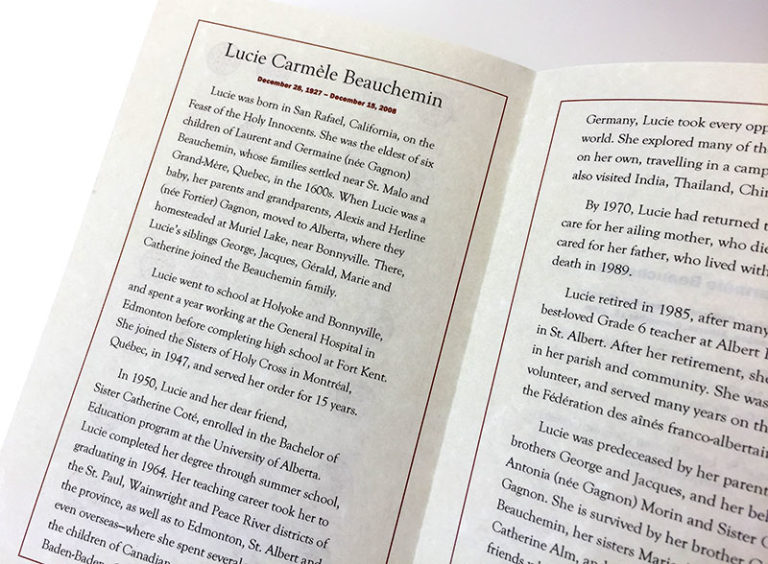 Lucie Carmèle Beauchemin
December 28, 1927 – December 15, 2008
Lucie was born in San Rafael, California, on the
Feast of the Holy Innocents. She was the eldest of six
children of Laurent and Germaine (née Gagnon)
Beauchemin, whose families settled near St. Malo and
Grand-Mère, Quebec, in the 1600s. When Lucie was a
baby, her parents and grandparents, Alexis and Herline
(née Fortier) Gagnon, moved to Alberta, where they
homesteaded at Muriel Lake, near Bonnyville. There,
Lucie's siblings George, Jacques, Gérald, Marie and
Catherine joined the Beauchemin family.
Lucie went to school at Holyoke and Bonnyville,
and spent a year working at the General Hospital in
Edmonton before completing high school at Fort Kent.
She joined the Sisters of Holy Cross in Montréal,
Québec, in 1947, and served her order for 15 years.
In 1950, Lucie and her dear friend,
Sister Catherine Coté, enrolled in the Bachelor of
Education program at the University of Alberta.
Lucie completed her degree through summer school,
graduating in 1964. Her teaching career took her to
the St. Paul, Wainwright and Peace River districts of
the province, as well as to Edmonton, St. Albert and
even overseas—where she spent several
the children of Canadian
Baden-Baden
Germany, Lucie took every opp
world. She explored many of th
on her own, travelling in a camp
also visited India, Thailand, Chin
By 1970, Lucie had returned t
care for her ailing mother, who die
cared for her father, who lived with
death in 1989.
Lucie retired in 1985, after many
best-loved Grade 6 teacher at Albert
in St. Albert. After her retirement, she
in her parish and community. She was
volunteer, and served many years on th
the Fédération des aînés franco-albertain
Lucie was predeceased by her parent
brothers George and Jacques, and her bel
Antonia (née Gagnon) Morin and Sister C
Gagnon. She is survived by her brother G
Beauchemin, her sisters Marie
Catherine Alm, and
friends